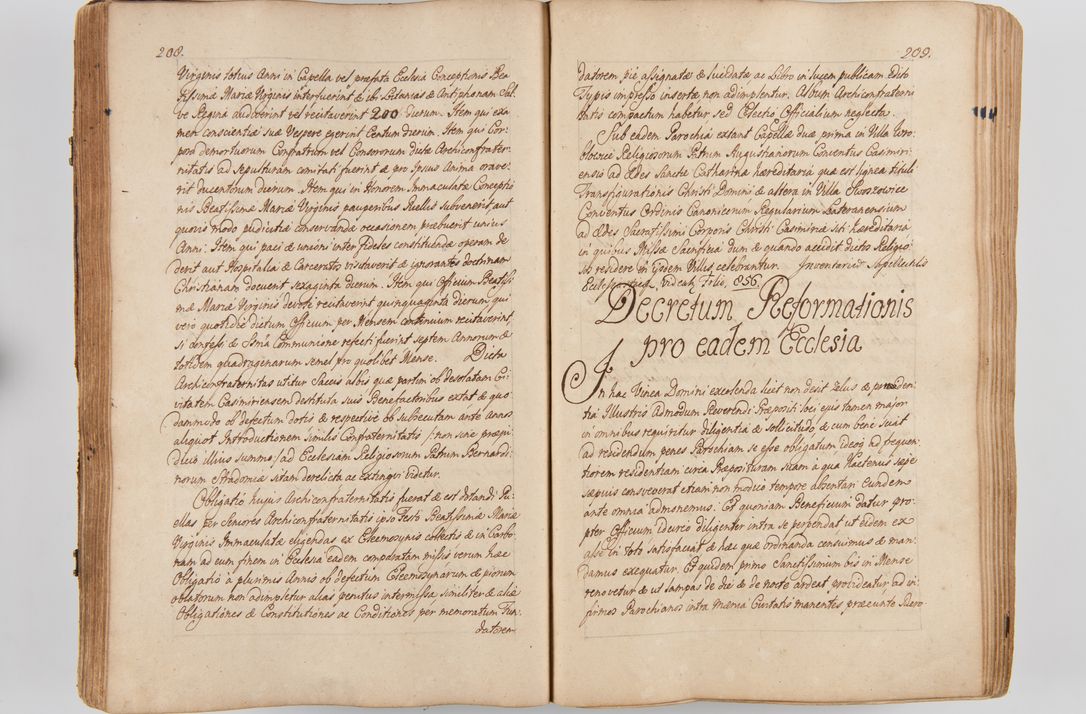 208.
Virginis totius Anni in Capella vel præfata Ecclesia Conceptionis Bea
tissimæ Mariæ Virginis interfuerint & ibi Litanias & Antiphonam Sal
ve Regina audiverint vel recitaverint 200 dierum. Item qui exa
men conscientiæ suæ Vespere egerint Centum dierum. Item qui Cor
pora demortuorum Confratrum vel Consororum dictæ Archiconfrater
nitatis ad Sepulturam comitati fuerint & pro ipsius Anima orave
rit ducentorum dierum. Item qui in honorem Immaculatæ Conceptio
nis Beatissimæ Mariæ Virginis pauperibus Puellis subvenerit aut
quovis modo pudicitiæ conservandæ occasionem præbuerit unius
Anni. Item qui paci & unioni inter fideles constituendæ operam de
derit aut Hospitalia & Carceratos visitaverit & ignorantes doctrinam
Christianam docuerit sexaginta dierum. Item qui Officium Beatissi
mæ Mariæ Virginis devote recitaverint quinquaginta dierum, qui
vero quotidie dictum Officium per Mensem continuum recitaverint,
si confessi & Sacra Communione refecti fuerint septem Annorum &
totidem quadragenarum semel pro quolibet Mense. Dicta
Archiconfraternitas utitur Saccis albis quæ partim ob desolatam Ci
vitatem Casimiriensem destituta suis Benefactoribus extat & quo
dammodo ob defectum dotis & respective ob subsecutam ante Annos
aliquot Introductionem similis Confraternitatis /: non sine præju
dicio illius summo/ ad Ecclesiam Religiosorum Patrum Bernardi
norum Stradomiæ sitam derelicta ac extingui videtur.
Obligatio hujus Archiconfraternitatis fuerat & est Dotandi Pu
ellas per Seniores Archiconfraternitatis ipso Festo Beatissimæ Mariæ
Virginis Immaculatæ eligendas ex Eleemosynis collectis & in Carbo
nam ad eum finem in Ecclesia eadem comparatam missis verum hæc
Obligatio a plurimis Annis ob defectum Eleemosynarum & piorum
oblatorum non adimpletur alias penitus intermissa similiter & aliæ
Obligationes & Constitutiones ac Conditiones per memoratum Fun
datorem
209.
datorem pie assignatæ & elucidatæ ac Libro in lucem publicam edito
Typis impresso insertæ non adimplentur. Album Archiconfraterni
tatis compactum habetur sed Electio Officialium neglecta.
Sub eadem Parochia extant Capellæ duæ prima in Villa
Religiosorum Patrum Augustianorum Conventus Casimiri
ensis ad Ædes Sanctæ Catharinæ hæreditaria quæ est lignea tituli
Transfigurationis Christi Domini & altera in Villa
Conventus Ordinis Canonicorum Regularium Lateranensium
ad Ædes Sacratissimi Corporis Christi Casimiriæ siti hæreditaria
in quibus Missæ Sacrificia dum & quando accidit dictos Religio
sos residere in iisdem Villis celebrantur. Inventarium Supellectilis
Ecclesiasticæ videatur Folio, 856.
Decretum Reformationis
pro eadem Ecclesia
In hac Vinea Domini excolenda licet non desit zelus & providen
tia Illustris Admodum Reverendi Præpositi loci ejus tamen major
in omnibus requiritur diligentia & sollicitudo & cum bene sciat
ad residendum penes Parochiam se esse obligatum ideoq ad frequen
tiorem residentiam circa Præposituram sitam a qua hactenus sæpe
sæpius consveverat etiam non modico tempore absentari Eundem
ante omnia admonemus. Et quoniam Beneficium datur pro
pter Officium idcirco diligenter intra se perpendat ut eidem ex
asse in toto satisfaciat & hæc quæ ordinanda censuimus & man
damus exequatur. Et quidem primo Sanctissimum bis in Mense
renovetur & ut lampas de die & de nocte ardeat provideatur ad in
firmos Parochianos intra mænia Civitatis manentes præeunte Puero